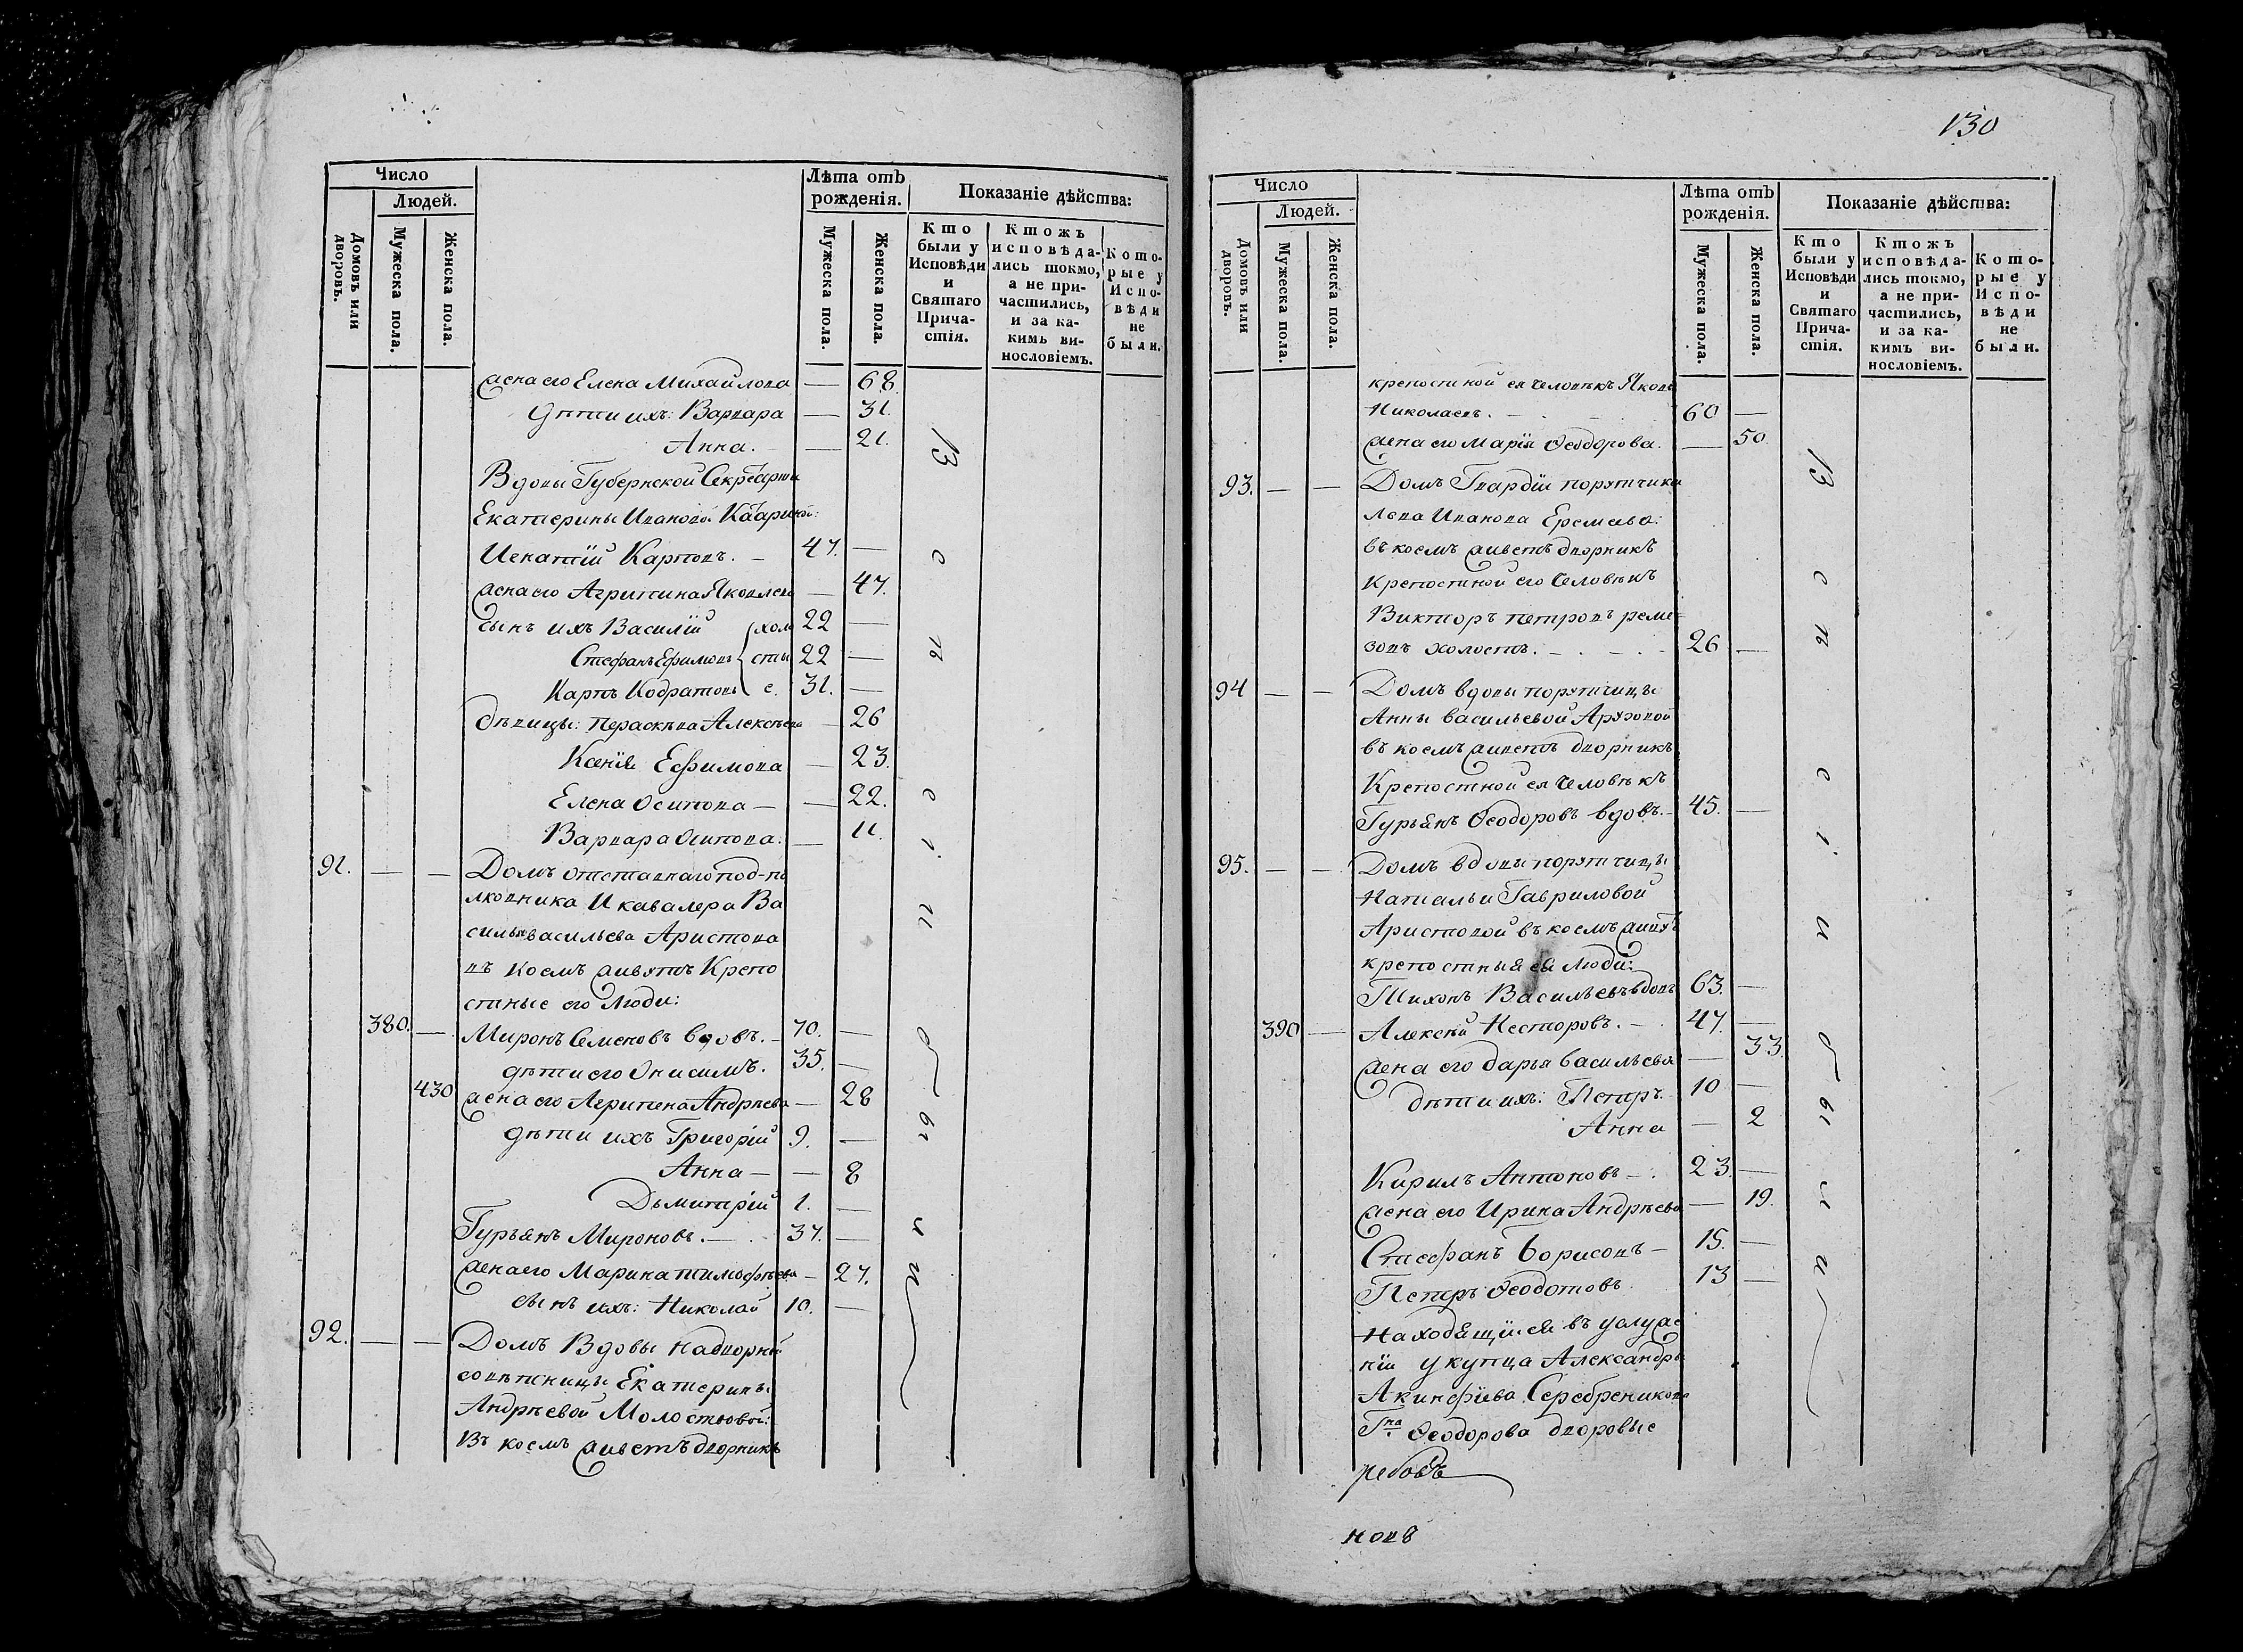 Число
Людей.
Домовъ или дворовъ.
Мужеска пола.
Женска пола.
Лѣта отъ рожденія.
Мужеска пола.
Женска пола.
Показаніе дѣйства:
Кто были у Исповѣди и Святаго Причастія.
Ктожъ исповѣдались токмо, а не причастились, и за какимъ винословіемъ.
Которые у Исповѣди не были.
жена его Елена Михайлова — 68.
Дѣти ихъ: Варвара — 31.
Анна. — 21.
Вдовы Губернской Секретарши
Екатерины Ивановой
Игнатій Карповъ. 47. —
жена его Агрипина Яковлева — 47.
сынъ ихъ Василій 22 —
Стефанъ Ефимовъ 22 —
холосты
Карпъ Кодратовъ 31. —
дѣвицы: Пераскѣва Алексѣева — 26
Ксенія Ефимова — 23.
Елена Осипова — 22.
Варвара Осипова. — 11.
91. — — Домъ отставнаго под-по
лковника и кавалера Ва
силья васильева Аристова
въ коемъ живутъ Крепо
стные его Люди:
380. — Миронъ Семеновъ вдовъ. 70. —
дѣти его Онисимъ. 35. —
430 жена его Агрипена Андрѣева — 28
дѣти ихъ Григорій 9. —
Анна — 8
Дьмитрій 1. —
Гурьянъ Мироновъ. 37. —
жена его Марина тимофѣева — 27.
сынъ ихъ: Николай 10. —
92. — — Домъ Вдовы надворной
совѣтницы Екатерины
Андрѣевой Молостовой:
въ коемъ живетъ дворникъ
130
Число
Людей.
Домовъ или дворовъ.
Мужеска пола.
Женска пола.
Лѣта отъ рожденія.
Мужеска пола.
Женска пола.
Показаніе дѣйства:
Кто были у Исповѣди и Святаго Причастія.
Ктожъ исповѣдались токмо, а не причастились, и за какимъ винословіемъ.
Которые у Исповѣди не были.
крепостной ея человѣкъ Яковъ
Николаевъ. 60 —
жена его Марія Ѳеодорова. — 50.
93. — — Домъ Гвардіи порутчика
Льва Иванова Еремеева:
въ коемъ живетъ дворникъ
Крепостной его человѣкъ
Викторъ петровъ реме
зовъ холостъ. 26 —
94 — — Домъ вдовы порутчицы
Анны васильевой
въ коемъ живетъ дворникъ
Крепостной ея человѣкъ
Гурьянъ Ѳеодоровъ вдовъ. 45. —
95. — — Домъ вдовы порутчицы
Натальи Гавриловой
Аристовой въ коемъ живутъ
крепостныя ея люди:
Тихонъ Васильевъ вдовъ 63. —
390 — Алексѣй Несторовъ. 47. —
жена его дарья васильева — 33.
дѣти ихъ: Петръ. 10 —
Анна — 2
Кирилъ Антоновъ 23. —
жена его Ирина Андрѣева — 19.
Стефанъ Борисовъ 15. —
Петръ Ѳеодотовъ 13 —
Находящіися въ услуже
ніи у купца Александра
Акинфіева Серебреникова
Гна Ѳеодорова дворовые